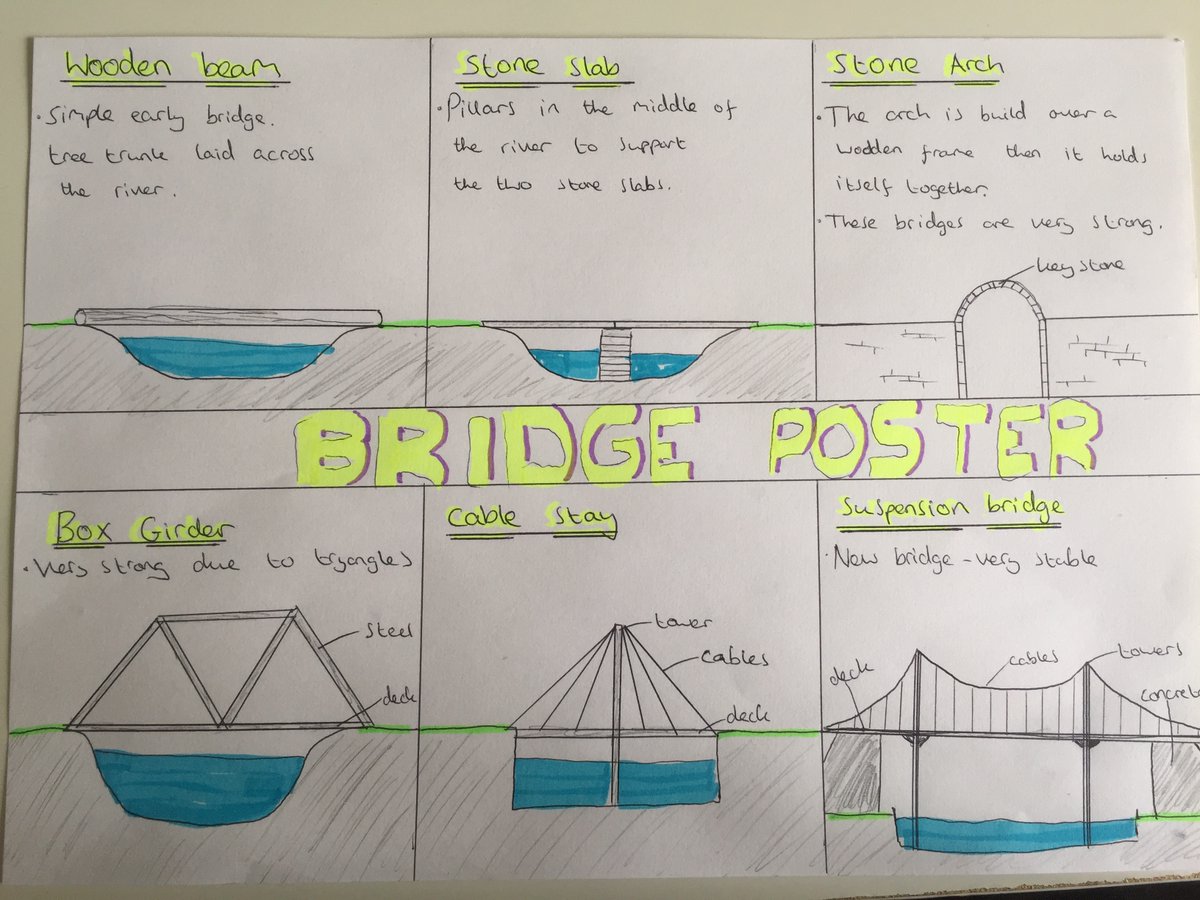 Wooden beam
• Simple early bridge.
tree trunk laid across
the river.
Stone Slab
• Pillars in the middle of
the river to support
the two stone slabs.
Stone Arch
• The arch is build over a
wooden frame then it holds
itself together.
• These bridges are very strong.
key stone
BRIDGE POSTER
Box Girder
• Very strong due to tryangles
steel
deck
Cable Stay
tower
cables
deck
Suspension bridge
• New bridge - very stable
deck
cables
towers
concrete